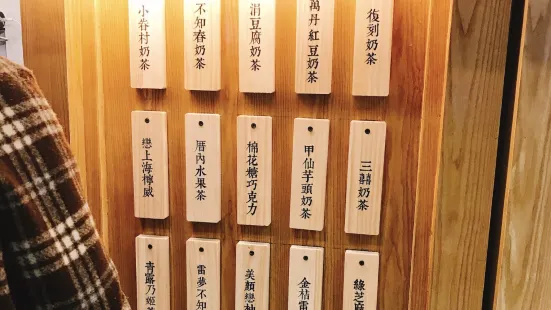 小眷村奶茶
不知春奶茶
涓豆腐奶茶
萬丹紅豆奶茶
復刻奶茶
戀上海檸威
厝內水果茶
棉花糖巧克力
甲仙芋頭奶茶
三囍奶茶
青露乃姬茶
雷夢不知
美顏戀柚
金桔雷
綠芝麻